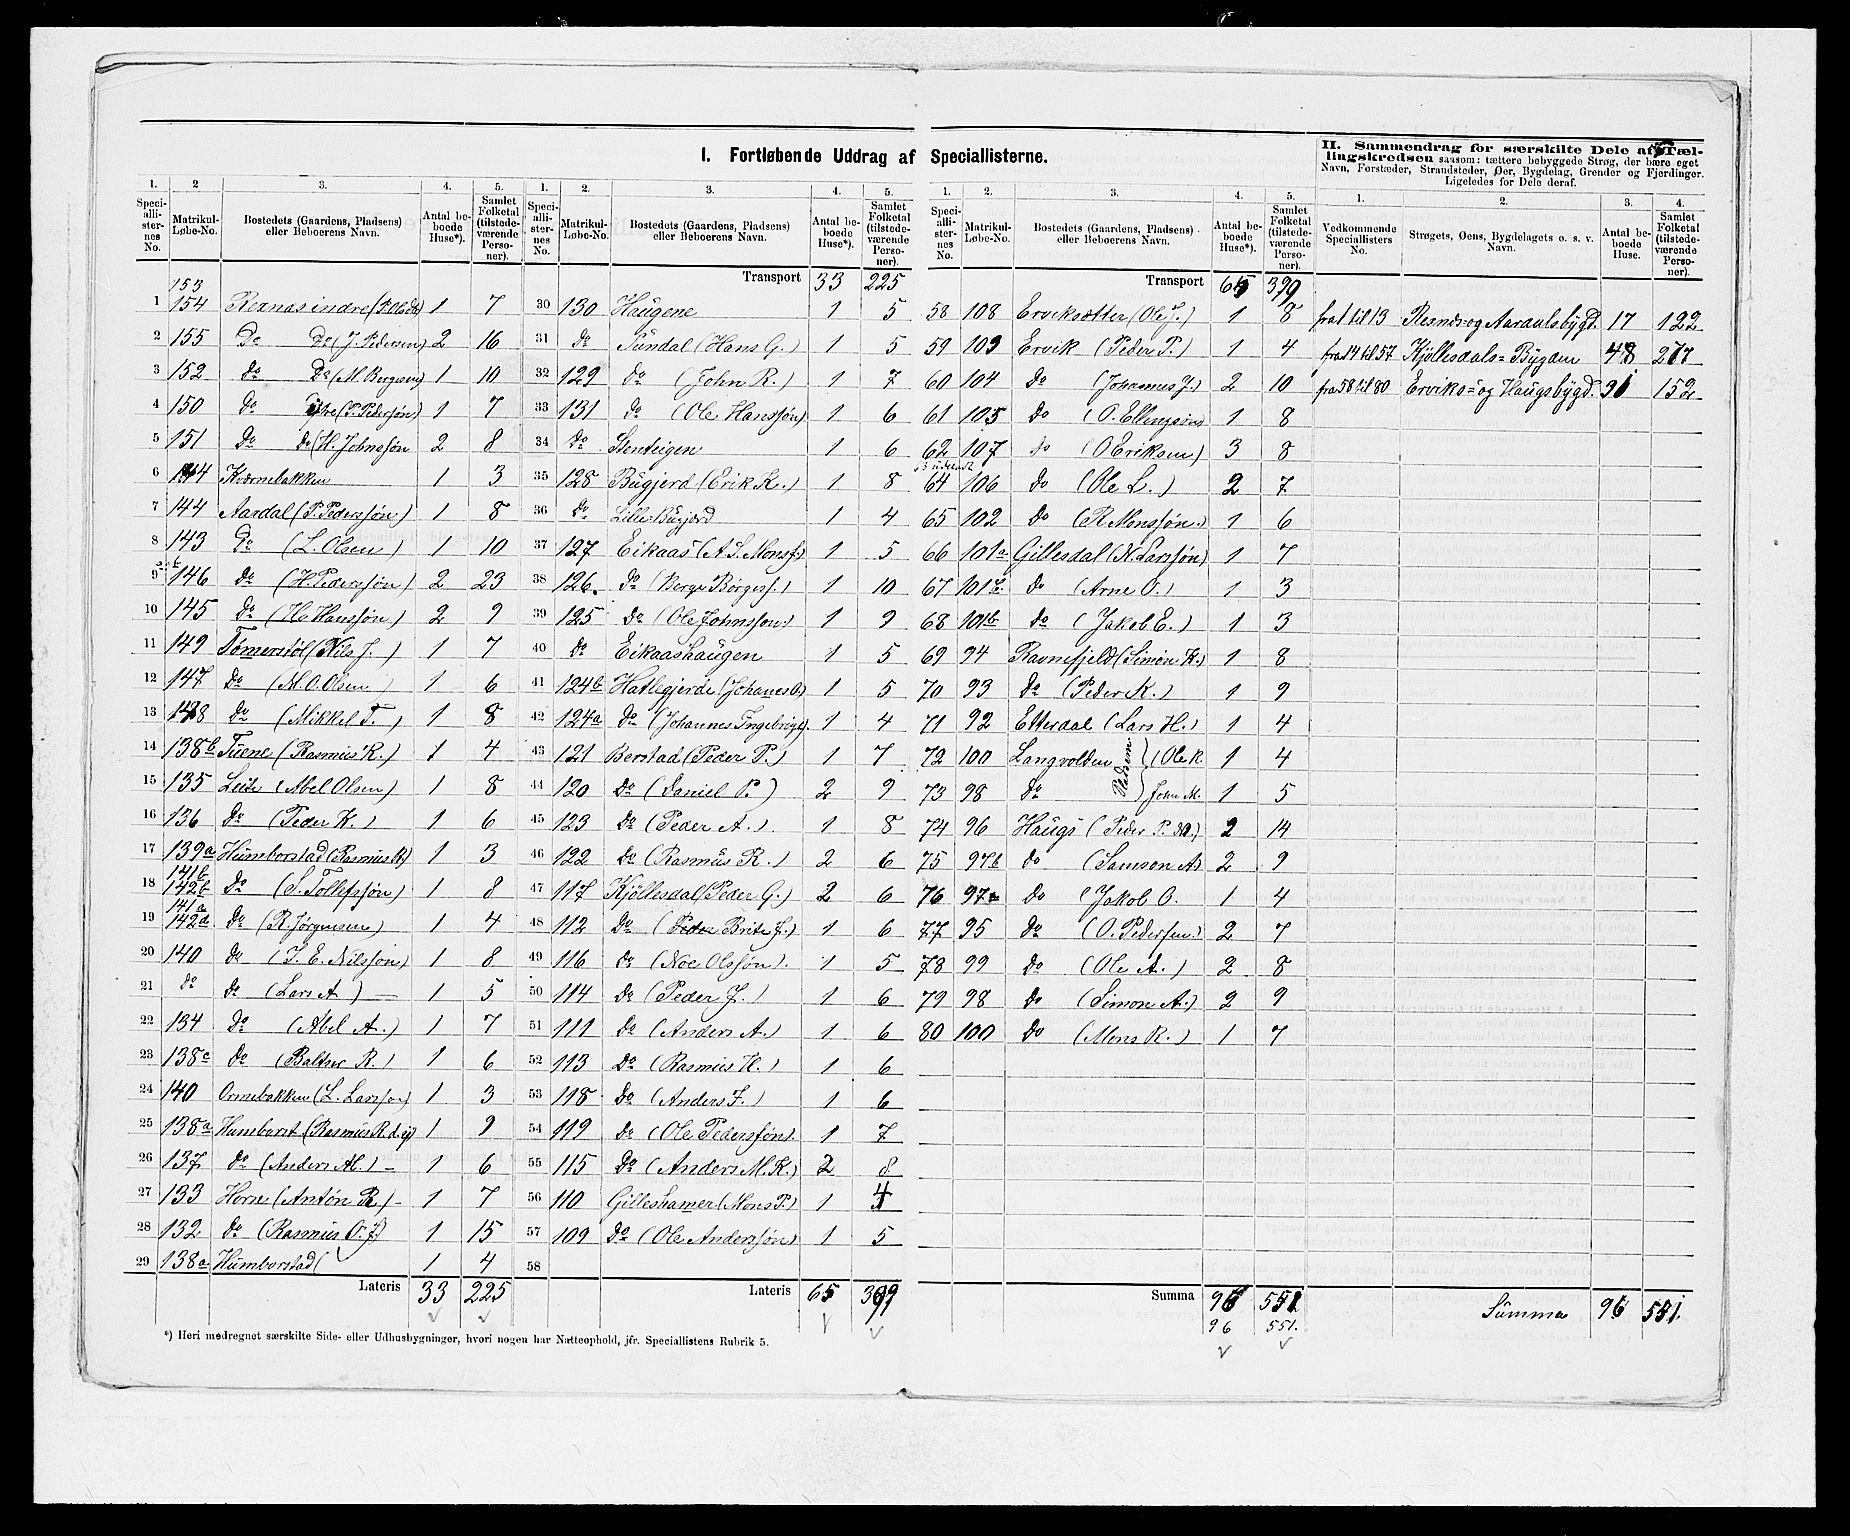 I. Fortløbende Uddrag af Speciallisterne.
II. Sammendrag for særskilte Dele af Tæl-
lingskredsen saasom: tættere bebyggede Strøg, der bære eget
Navn, Forstæder, Strandsteder, Øer, Bygdelag, Grender og Fjerdinger.
Ligeledes for Dele deraf.
1. 2 3. 4. 5. 1. 2. 3. 4. 5. 1. 2. 3. 4. 5. 1. 2. 3. 4.
Speciallisternes No. Matrikul-Løbe-No. Bostedets (Gaardens, Pladsens) eller Beboerens Navn. Antal beboede Huse*). Samlet Folketal (tilstedeværende Personer).
Speciallisternes No. Matrikul-Løbe-No. Bostedets (Gaardens, Pladsens) eller Beboerens Navn. Antal beboede Huse*). Samlet Folketal (tilstedeværende Personer).
Speciallisternes No. Matrikul-Løbe-No. Bostedets (Gaardens, Pladsens) eller Beboerens Navn. Antal beboede Huse*). Samlet Folketal (tilstedeværende Personer).
Vedkommende Speciallisters No. Strøgets, Øens, Bygdelagets o. s. v. Navn. Antal beboede Huse. Samlet Folketal (tilstedeværende Personer).
153
1 154 Rexnæs indre 1 7
2 155 Do Do (J. Pedersen) 2 16
3 152 do Do (M. Børgesen) 1 10
4 150 do (P. Pedersøn) 1 7
5 151 do do (H. Johnssøn 2 8
6 144 Kværnebakken 1 3
7 144 Aardal (P. Pederssøn) 1 8
8 143 Do (L. Olsen) 1 10
9 146 do (H. Pederssøn) 2 23
10 145 do (H. Hanssøn) 2 9
11 149 Tomerstøl (Nils J.) 1 7
12 147 Do (M. O. Olsen) 1 6
13 148 do (Mikkel T.) 1 8
14 138b Tüene (Rasmus K.) 1 4
15 135 Leite (Abel Olsen) 1 8
16 136 do (Peder K.) 1 6
17 139a Humborstad (Rasmus) 1 3
141b
18 142b Do (S. Tollefssøn) 1 8
141a
19 142d Do (R. Jørgensen) 1 4
20 140 do (J. E. Nilssøn) 1 8
21 do do (Lars A ) 1 5
22 134 do (Abel A.) 1 7
23 138c do (Baltser R.) 1 6
24 140 Ormebakken (L. Larssøn) 1 3
25 138a Humborst (Rasmus R. d. y) 1 9
26 137 do (Anders Al.) 1 6
27 133 Horne (Antön R.) 1 7
28 132 do (Rasmus O. J) 1 15
29 138a Humborstad ( 1 4
Lateris 33 225
Transport 33 225
30 130 Haugene 1 5
31 do Sundal (Hans G.) 1 5
32 129 do (John R.) 1 7
33 131 do (Ole Hanssøn) 1 6
34 do Stenteigen 1 6
35 128 Bugjerd (Erik K.) 1 8
36 do Lille-Bugjerd 1 4
37 127 Eikaas (A. S. Monsf.) 1 5
38 126. do (Berge Børgess.) 1 10
39 125 do (Ole Johnssøn) 1 9
40 do Eikaashaugen 1 5
41 124b Hatlegjerde (Johanes O.) 1 5
42 124a do (Johannes Ingebrigt). 1 4
43 121 Berstad (Peder P.) 1 7
44 120 Do (Daniel P.) 2 9
45 123 Do (Peder A.) 1 8
46 122 do (Rasmus R.) 2 6
47 117 Kjöllesdal (Peder G.) 2 6
48 112 Do (Peder Brite J.) 1 6
49 116 do (Noe Olssøn). 1 5
50 114 do (Peder J.) 1 6
51 111 Do (Anders A.) 1 6
52 113 Do (Rasmus H.) 1 6
53 118 Do (Anders J.) 1 6
54 119 do (Ole Pederssøn). 1 7
55 115 Do (Anders M. K.) 2 8
56 110 Gilleshamer (Mons P.) 1 4
57 109 Do (Ole Anderssøn) 1 5
58
Lateris 65 399
Transport 65 399
58 108 Erviksætter (Ole J.) 1 8
59 103 Ervik (Peder P.) 1 4
60 104 do (Johannes J.) 2 10
61 105 do (O. Ellingsøn) 1 8
62 107 do (O Eriksen) 3 8
64 106 do (Ole L.) 2 7
65 102 do (R Monssøn.) 1 6
66 101a Gillesdal (N. Larssøn) 1 7
67 101c do (Arne O.) 1 3
68 101b do (Jakob E.) 1 3
69 94 Ravnefjeld (Simon K.) 1 8
70 93 do (Peder K.) 1 9
71 92 Etterdal (Lars H.) 1 4
72 100 Langvolden (Ole K. 1 4
73 98 do John M. 1 5
Pladsen.
74 96 Haugs (Peder P. ) 2 14
75 97b do (Samson A) 2 9
76 97a do (Jakob O. 1 4
77 95 do (O. Pedersen.) 2 7
78 99 do (Ole A.) 2 8
79 98 do (Simon A.) 2 9
80 100 do (Mons R.) 1 7
Summa 96 551
96 551.
fra 1 til 13 Resnæs og Aardalsbygd. 17 122
fra 14 til 57 Kjöllesdals-Bygden 48 277
fra 58 til 80 Erviks- og Haugsbygd. 31 152
Summa 96 551.
*) Heri medregnet særskilte Side- eller Udhusbygninger, hvori nogen har Natteophold, jfr. Speciallistens Rubrik 5.